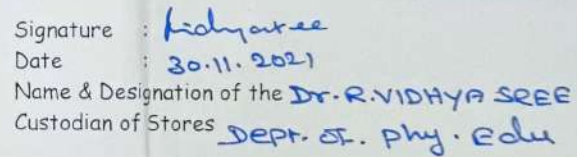 Signature : Vidhyasree
Date : 30.11.2021
Name & Designation of the Dr. R. VIDHYA SREE
Custodian of Stores Dept. of. Phy. Edu